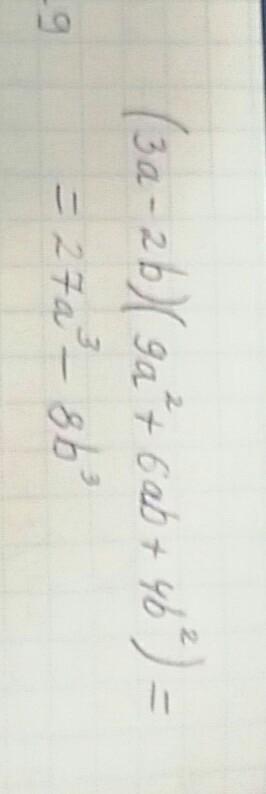 (3a - 2b)(9a² + 6ab + 4b²) =
= 27a³ - 8b³
.9